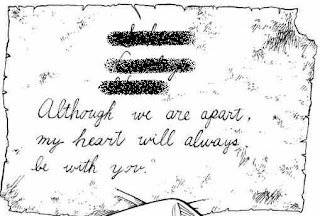 Although we are apart,
my heart will always
be with you.